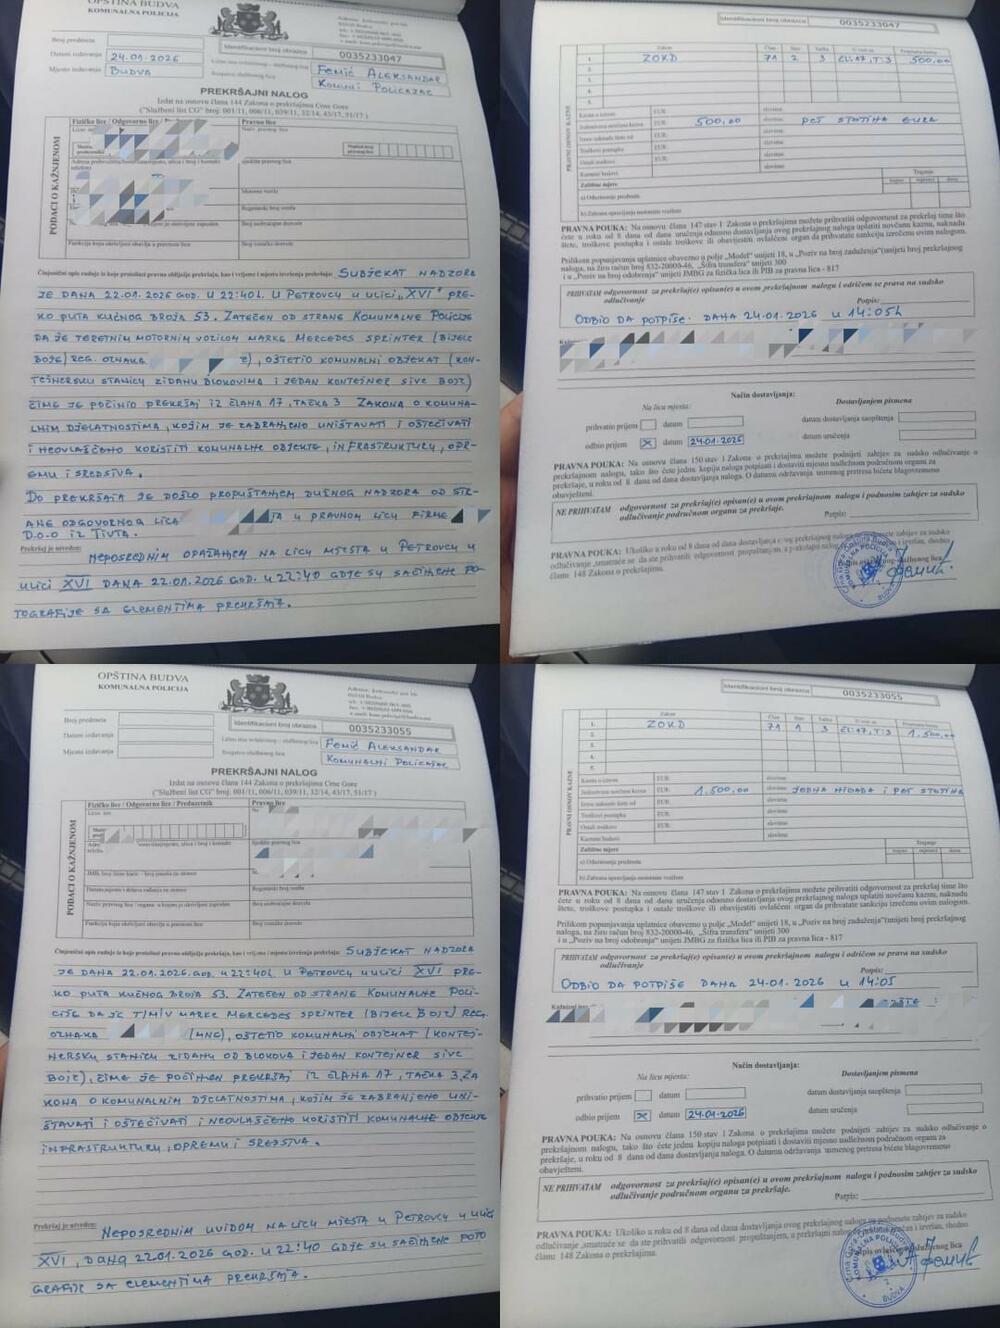 OPŠTINA BUDVA
KOMUNALNA POLICIJA
Broj predmeta
Datum izdavanja 24.01.2026
Mjesto izdavanja BUDVA
Identifikacioni broj obrasca 0035233047
FEMIĆ ALEKSANDAR
KOMUNALNI POLICAJAC
PREKRŠAJNI NALOG
Izdat na osnovu člana 144 Zakona o prekršajima Crne Gore
("Službeni list CG" broj: 001/11, 006/11, 039/11, 32/14, 43/17, 51/17 )
PODACI O KAŽNJENOM
Fizičko lice / Odgovorno lice /
Pravno lice
Naziv pravnog lica
Sjedište pravnog lica
Matična vozila
Registarski broj vozila
Broj saobraćajne dozvole
Funkcija koju okrivljeni obavlja u pravnom licu
Broj vozačke dozvole
Činjenični opis radnje iz koje proizilazi pravno obilježje prekršaja, kao i vrijeme i mjesto izvršenja prekršaja: SUBJEKAT NADZORA
JE DANA 22.01.2026 GOD. U 22:40h. U PETROVCU U ULICI „XVI" PRE-
KO PUTA KUĆNOG BROJA 53. ZATEČEN OD STRANE KOMUNALNE POLICIJE
DA JE TERETNIM MOTORNIM VOZILOM MARKE MERCEDES SPRINTER (BIJELE
BOJE) REG. OZNAKA ), OŠTETIO KOMUNALNI OBJEKAT (KON-
TEJNERSKU STANICU ZIDANU BLOKOVIMA I JEDAN KONTEJNER SIVE BOJE)
ČIME JE POČINIO PREKRŠAJ IZ ČLANA 17, TAČKA 3 ZAKONA O KOMUNA-
LNIM DJELATNOSTIMA, KOJIM JE ZABRANJENO UNIŠTAVATI I OŠTEĆIVATI
I NEOVLAŠĆENO KORISTITI KOMUNALNE OBJEKTE, INFRASTRUKTURU, OPR-
EMU I SREDSTVA.
DO PREKRŠAJA JE DOŠLO PROPUŠTANJEM DUŽNOG NADZORA OD STR-
ANE ODGOVORNOG LICA U PRAVNOM LICU FIRME
D.O.O IZ TIVTA.
Prekršaj je utvrđen: NEPOSREDNIM OPAŽANJEM NA LICU MJESTA U PETROVCU U
ULICI XVI DANA 22.01.2026 GOD. U 22:40 GDJE SU SAČINJENE FO-
TOGRAFIJE SA ELEMENTIMA PREKRŠAJA.
Identifikacioni broj obrasca 0035233047
PRAVNI OSNOV KAZNE
Zakon Član Stav Tačka
1. ZOKD 71 2 3 ČL:17,T:3 500,00
2.
3.
4.
5.
Kazna u iznosu EUR: slovima:
Jedinstvena novčana kazna EUR: 500,00 slovima: PET STOTINA EURA
EUR: slovima:
Troškovi postupka EUR: slovima:
Ostali troškovi EUR: slovima:
Kazneni bodovi
Zaštitne mjere Trajanje
a) Oduzimanje predmeta
b) Zabrana upravljanja motornim vozilom
PRAVNA POUKA: Na osnovu člana 147 stav 1 Zakona o prekršajima možete prihvatiti odgovornost za prekršaj time što
ćete u roku od 8 dana od dana uručenja odnosno dostavljanja naloga uplatiti novčanu kaznu, naknadu
štete, troškove postupka i ostale troškove ili obavijestiti ovlašćeni organ da prihvatate sankciju izrečenu ovim nalogom.
Prilikom popunjavanja uplatnice obavezno u polje „Model" unijeti 18, u „Poziv na broj zaduženja"(unijeti broj prekršajnog
naloga, na žiro račun broj 832-20000-46, „Šifra transfera" unijeti 300
i u „Poziv na broj odobrenja" unijeti JMBG za fizička lica ili PIB za pravna lica - 817
PRIHVATAM odgovornost za prekršaj(e) opisan(e) u ovom prekršajnom nalogu i odričem se prava na sudsko
odlučivanje
Potpis:
ODBIO DA POTPIŠE. DANA 24.01.2026 U 14:05h
Način dostavljanja:
Na licu mjesta:
Dostavljanjem pismena
prihvatio prijem datum
datum dostavljanja saopštenja
odbio prijem X datum 24.01.2026
datum uručenja
PRAVNA POUKA: Na osnovu člana 150 stav 1 Zakona o prekršajima možete podnijeti zahtjev za sudsko odlučivanje o
prekršajnom nalogu, tako što ćete jednu kopiju naloga potpisati i dostaviti mjesno nadležnom područnom organu za
prekršaje, u roku od 8 dana od dana dostavljanja naloga. O datumu održavanja usmenog pretresa bićete blagovremeno
obaviješteni.
NE PRIHVATAM odgovornost za prekršaj(e) opisan(e) u ovom prekršajnom nalogu i podnosim zahtjev za sudsko
odlučivanje područnom organu za prekršaje.
Potpis:
PRAVNA POUKA: Ukoliko u roku od 8 dana od dana dostavljanja ovog prekršajnog naloga ne podnesete zahtjev za sudsko
odlučivanje ,smatraće se da ste prihvatili odgovornost propuštanjem, a prekršajni nalog konačan i izvršan, shodno
članu 148 Zakona o prekršajima.
KOMUNALNA POLICIJA
BUDVA
OPŠTINA BUDVA
KOMUNALNA POLICIJA
Broj predmeta
Datum izdavanja
Mjesto izdavanja
Identifikacioni broj obrasca 0035233055
FEMIĆ ALEKSANDAR
KOMUNALNI POLICAJAC
PREKRŠAJNI NALOG
Izdat na osnovu člana 144 Zakona o prekršajima Crne Gore
("Službeni list CG" broj: 001/11, 006/11, 039/11, 32/14, 43/17, 51/17 )
PODACI O KAŽNJENOM
Fizičko lice / Odgovorno lice / Preduzetnik
Pravno lice
Sjedište pravnog lica
Registarski broj vozila
Broj saobraćajne dozvole
Funkcija koju okrivljeni obavlja u pravnom licu
Broj vozačke dozvole
Činjenični opis radnje iz koje proizilazi pravno obilježje prekršaja, kao i vrijeme i mjesto izvršenja prekršaja: SUBJEKAT NADZORA
JE DANA 22.01.2026.GOD. U 22:40h U PETROVCU U ULICI XVI PRE-
KO PUTA KUĆNOG BROJA 53. ZATEČEN OD STRANE KOMUNALNE POLI-
CIJE DA JE T/M/V MARKE MERCEDES SPRINTER (BIJELE BOJE) REG.
OZNAKA (MNE), OŠTETIO KOMUNALNI OBJEKAT (KONTEJ-
NERSKU STANICU ZIDANU OD BLOKOVA I JEDAN KONTEJNER SIVE
BOJE), ČIME JE POČINJEN PREKRŠAJ IZ ČLANA 17, TAČKA 3, ZA
KONA O KOMUNALNIM DJELATNOSTIMA, KOJIM JE ZABRANJENO UNI-
ŠTAVATI I OŠTEĆIVATI I NEOVLAŠĆENO KORISTITI KOMUNALNE OBJEKTE
INFRASTRUKTURU, OPREMU I SREDSTVA.
Prekršaj je utvrđen: NEPOSREDNIM UVIDOM NA LICU MJESTA U PETROVCU U ULICI
XVI, DANA 22.01.2026 GOD. U 22:40 GDJE SU SAČINJENE FOTO
GRAFIJE SA ELEMENTIMA PREKRŠAJA.
Identifikacioni broj obrasca 0035233055
PRAVNI OSNOV KAZNE
Zakon Član Stav Tačka
1. ZOKD 71 1 3 ČL:17,T:3 1.500,00
2.
3.
4.
5.
Kazna u iznosu EUR: slovima:
Jedinstvena novčana kazna EUR: 1.500,00 slovima: JEDNA HILJADA I PET STOTINA
EUR: slovima:
Troškovi postupka EUR: slovima:
Ostali troškovi EUR: slovima:
Kazneni bodovi
Zaštitne mjere Trajanje
a) Oduzimanje predmeta
b) Zabrana upravljanja motornim vozilom
PRAVNA POUKA: Na osnovu člana 147 stav 1 Zakona o prekršajima možete prihvatiti odgovornost za prekršaj time što
ćete u roku od 8 dana od dana uručenja odnosno dostavljanja naloga uplatiti novčanu kaznu, naknadu
štete, troškove postupka i ostale troškove ili obavijestiti ovlašćeni organ da prihvatate sankciju izrečenu ovim nalogom.
Prilikom popunjavanja uplatnice obavezno u polje „Model" unijeti 18, u „Poziv na broj zaduženja"(unijeti broj prekršajnog
naloga, na žiro račun broj 832-20000-46, „Šifra transfera" unijeti 300
i u „Poziv na broj odobrenja" unijeti JMBG za fizička lica ili PIB za pravna lica - 817
PRIHVATAM odgovornost za prekršaj(e) opisan(e) u ovom prekršajnom nalogu i odričem se prava na sudsko
odlučivanje
Potpis:
ODBIO DA POTPIŠE DANA 24.01.2026 U 14:05
Način dostavljanja:
Na licu mjesta:
Dostavljanjem pismena
prihvatio prijem datum
datum dostavljanja saopštenja
odbio prijem X datum 24.01.2026
datum uručenja
PRAVNA POUKA: Na osnovu člana 150 stav 1 Zakona o prekršajima možete podnijeti zahtjev za sudsko odlučivanje o
prekršajnom nalogu, tako što ćete jednu kopiju naloga potpisati i dostaviti mjesno nadležnom područnom organu za
prekršaje, u roku od 8 dana od dana dostavljanja naloga. O datumu održavanja usmenog pretresa bićete blagovremeno
obaviješteni.
NE PRIHVATAM odgovornost za prekršaj(e) opisan(e) u ovom prekršajnom nalogu i podnosim zahtjev za sudsko
odlučivanje područnom organu za prekršaje.
Potpis:
PRAVNA POUKA: Ukoliko u roku od 8 dana od dana dostavljanja ovog prekršajnog naloga ne podnesete zahtjev za sudsko
odlučivanje ,smatraće se da ste prihvatili odgovornost propuštanjem, a prekršajni nalog konačan i izvršan, shodno
članu 148 Zakona o prekršajima.
KOMUNALNA POLICIJA
BUDVA